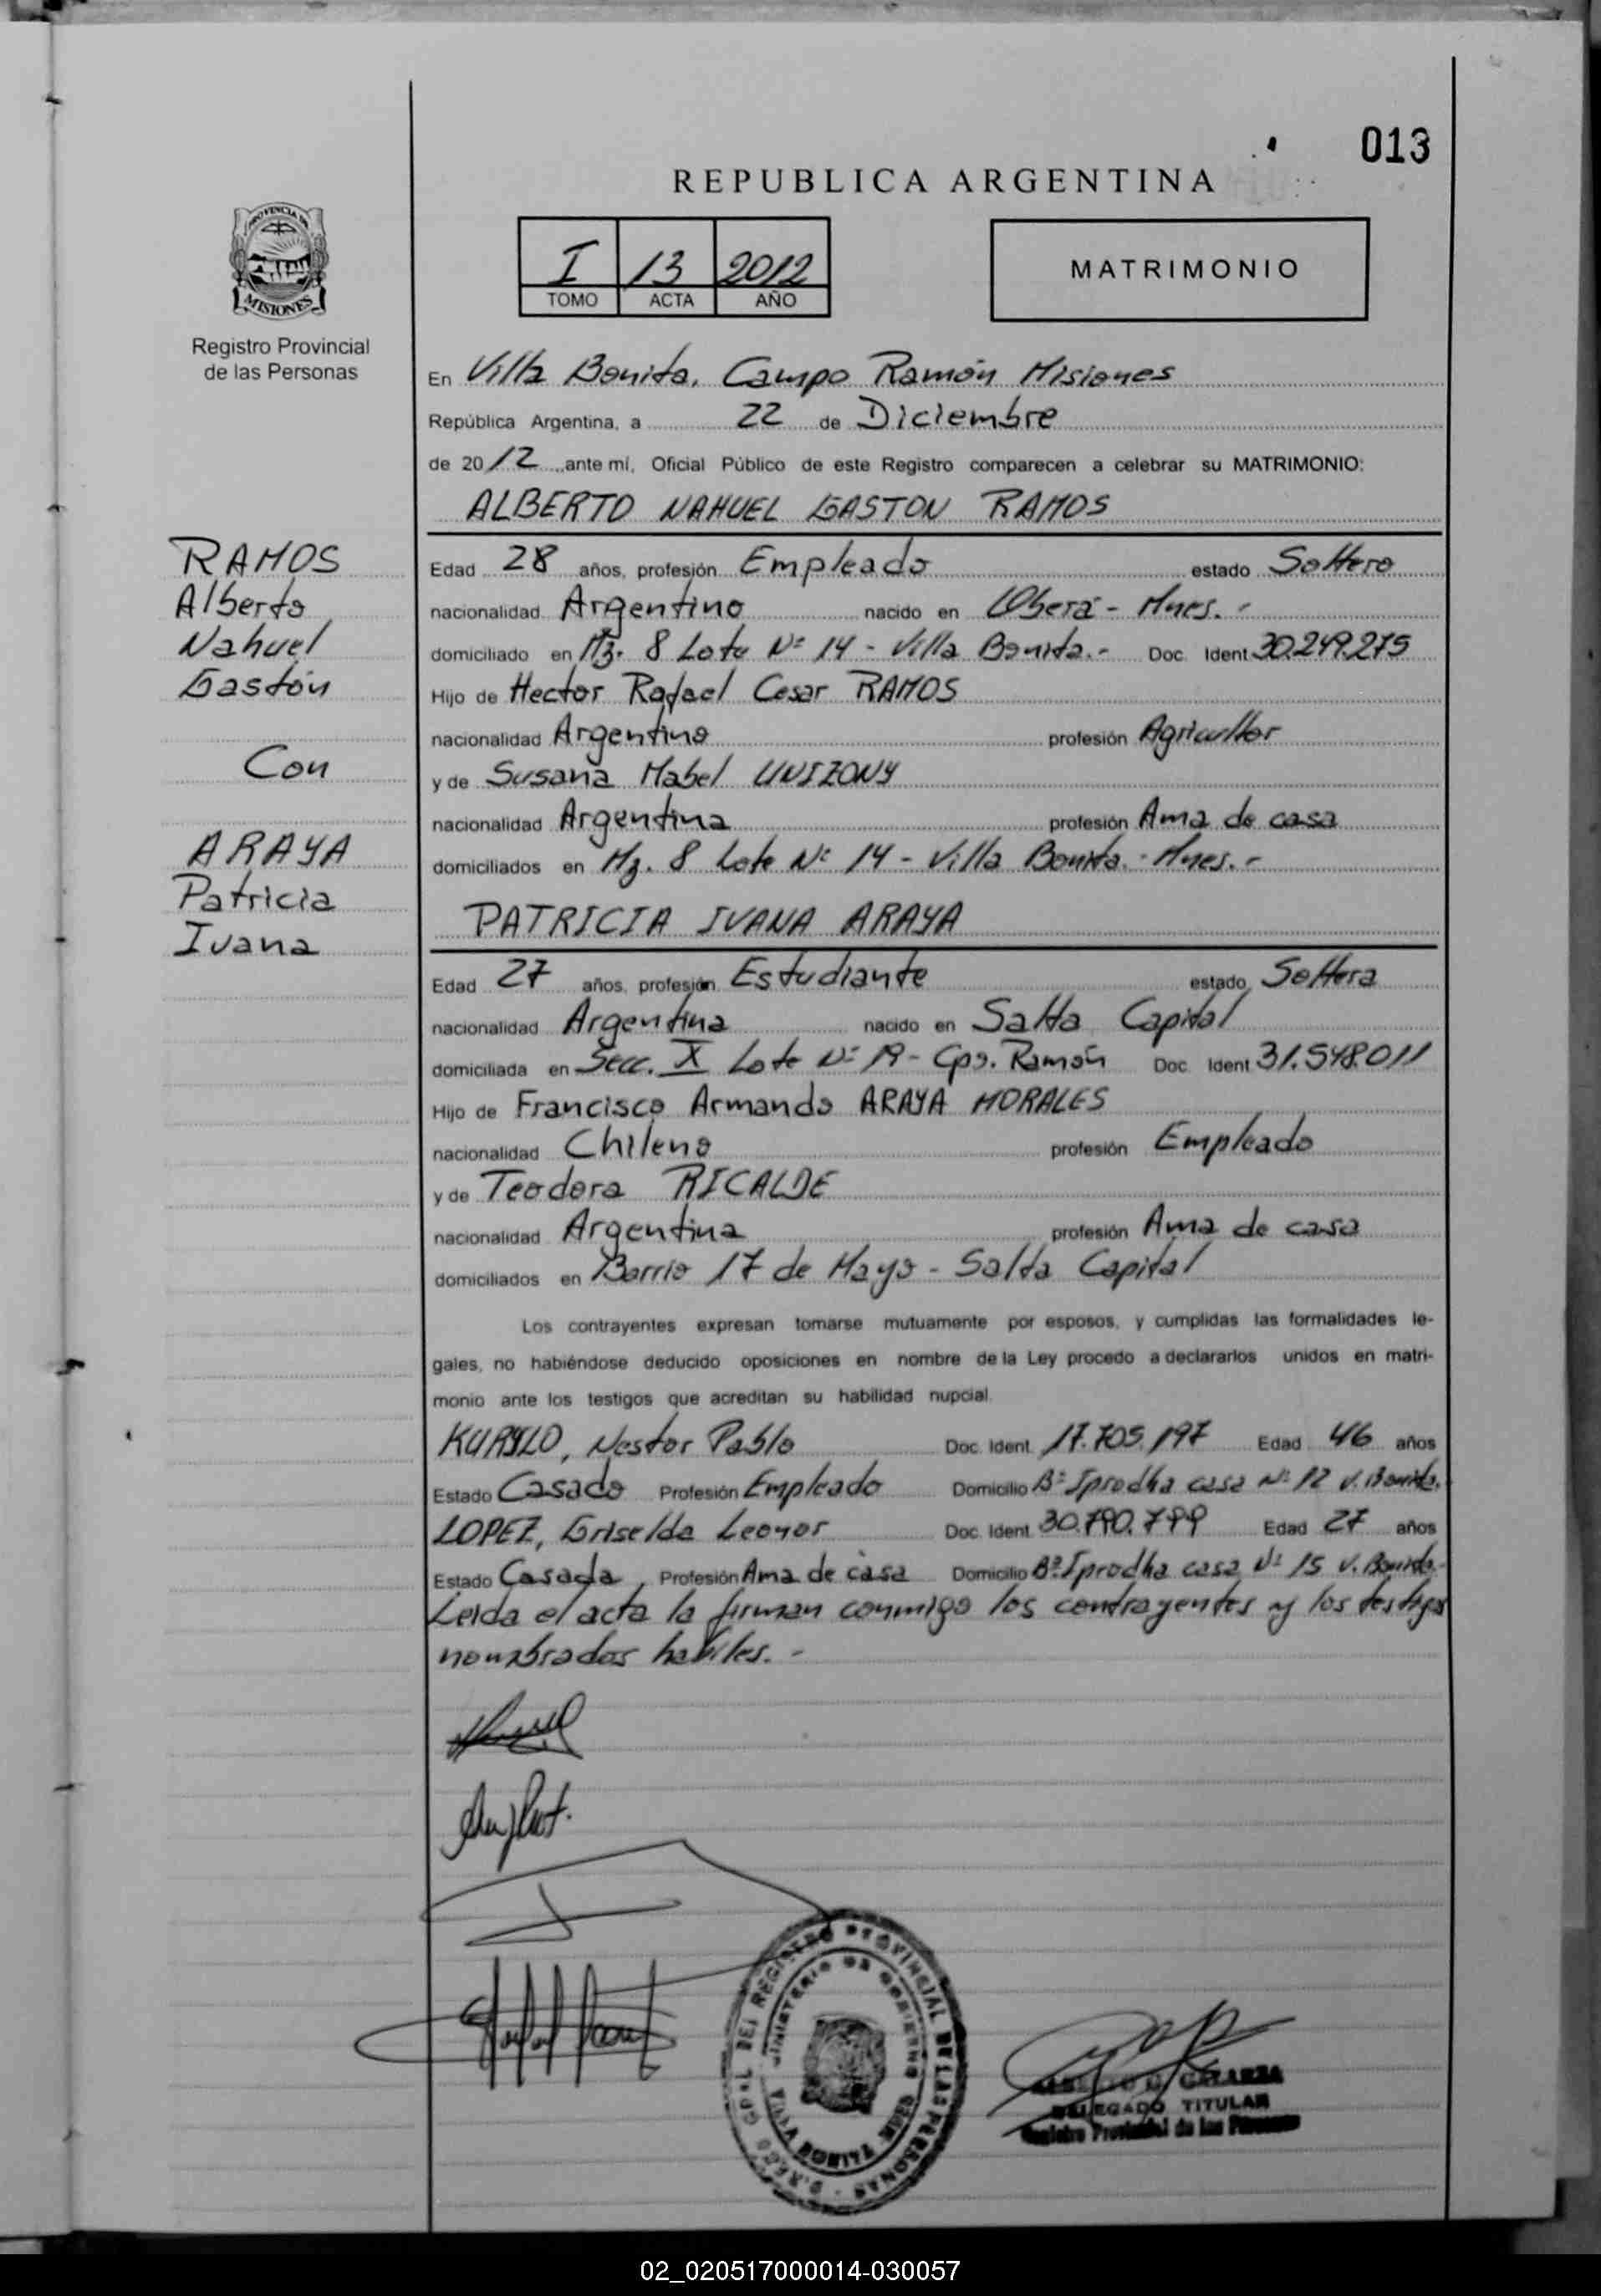 013
REPUBLICA ARGENTINA
PROVINCIA DE
MISIONES
Registro Provincial
de las Personas
I 13 2012
TOMO ACTA AÑO
MATRIMONIO
En Villa Bonita, Campo Ramón Misiones
República Argentina, a 22 de Diciembre
de 2012 ante mí, Oficial Público de este Registro comparecen a celebrar su MATRIMONIO:
ALBERTO NAHUEL GASTON RAMOS
RAMOS
Alberto
Nahuel
Gastón
Con
ARAYA
Patricia
Ivana
Edad 28 años, profesión Empleado estado Soltero
nacionalidad Argentino nacido en Oberá - Mnes. -
domiciliado en Mz. 8 Lote Nº 14 - Villa Bonita.- Doc. Ident 30.249.275
Hijo de Hector Rafael Cesar RAMOS
nacionalidad Argentino profesión Agricultor
y de Susana Mabel UNIZONY
nacionalidad Argentina profesión Ama de casa
domiciliados en Mz. 8 Lote Nº 14 - Villa Bonita.- Mnes.-
PATRICIA IVANA ARAYA
Edad 27 años, profesión Estudiante estado Soltera
nacionalidad Argentina nacido en Salta Capital
domiciliada en Secc. X Lote Nº 19 - Cpo. Ramón Doc. Ident 31.548.011
Hijo de Francisco Armando ARAYA MORALES
nacionalidad Chileno profesión Empleado
y de Teodora RICALDE
nacionalidad Argentina profesión Ama de casa
domiciliados en Barrio 17 de Mayo - Salta Capital
Los contrayentes expresan tomarse mutuamente por esposos, y cumplidas las formalidades le-
gales, no habiéndose deducido oposiciones en nombre de la Ley procedo a declararlos unidos en matri-
monio ante los testigos que acreditan su habilidad nupcial.
KURYLO, Nestor Pablo Doc. Ident. 17.705.197 Edad 46 años
Estado Casado Profesión Empleado Domicilio Bº Iprodha casa Nº 12 V. Bonita.
LOPEZ, Griselda Leonor Doc. Ident. 30.790.799 Edad 27 años
Estado Casada, Profesión Ama de casa Domicilio Bº Iprodha casa Nº 15 V. Bonita.-
Leida el acta la firman conmigo los contrayentes y los testigos
nombrados habiles. -
REGISTRO PROVINCIAL DE LAS PERSONAS
MINISTERIO DE GOBIERNO
VILLA BONITA
DELEGADO TITULAR
Registro Provincial de las Personas
02_020517000014-030057